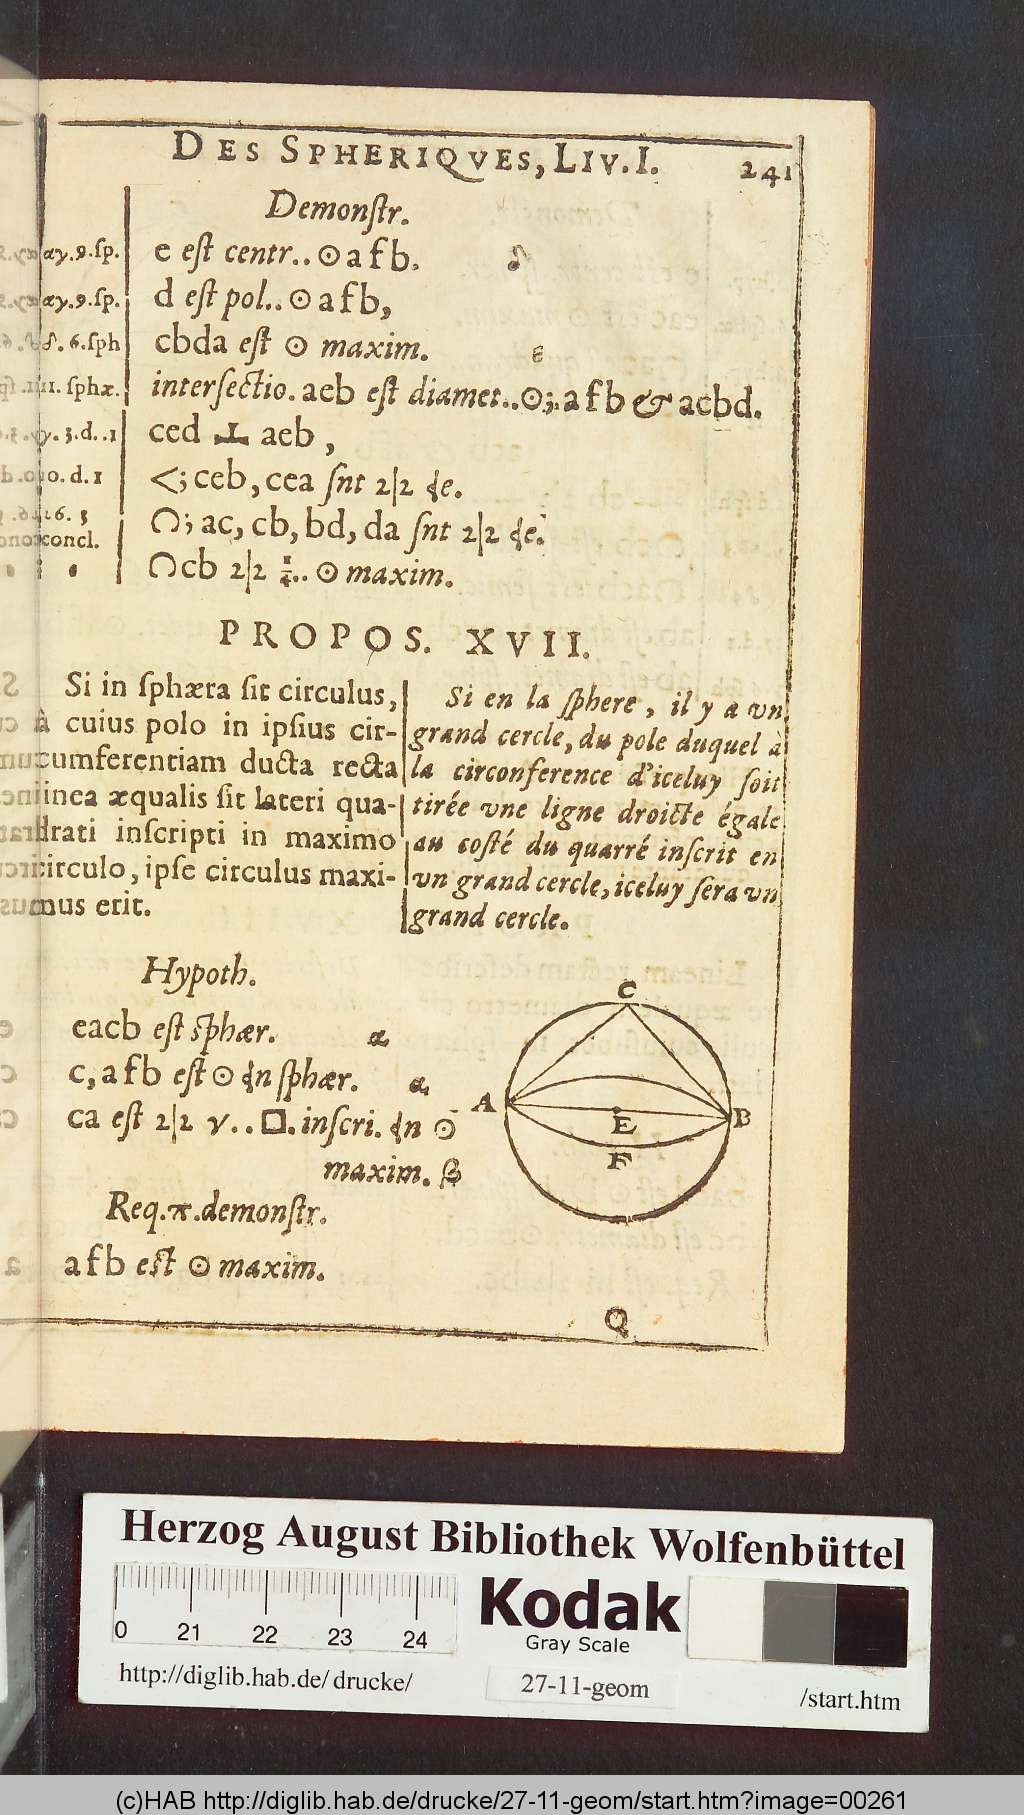 DES SPHERIQVES, LIV. I. 241
Demonſtr.
αγ. 9. ſp. e eſt centr.. ⊙ a f b. δ
αγ. 9. ſp. d eſt pol.. ⊙ a f b,
δ. 6. ſph cbda eſt ⊙ maxim. ε
11. ſphæ. interſectio. aeb eſt diamet.. ⊙; a f b & acbd.
γ. 3. d. .1 ced ⊥ aeb,
10. d. 1 <; ceb, cea ſnt 2|2 ɖe.
26. 3 ∩; ac, cb, bd, da ſnt 2|2 ɖe.
concl. ∩cb 2|2 ¼.. ⊙ maxim.
PROPOS. XVII.
Si in ſphæra ſit circulus,
à cuius polo in ipſius cir-
cumferentiam ducta recta
linea æqualis ſit lateri qua-
drati inſcripti in maximo
circulo, ipſe circulus maxi-
mus erit.
Si en la ſphere, il y a vn
grand cercle, du pole duquel à
la circonference d'iceluy ſoit
tirée vne ligne droicte égale
au coſté du quarré inſcrit en
vn grand cercle, iceluy ſera vn
grand cercle.
Hypoth.
eacb eſt ſphær. α
c, a f b eſt ⊙ ɖn ſphær. α
ca eſt 2|2 γ.. □. inſcri. ɖn ⊙
maxim. β
Req. π. demonſtr.
a f b eſt ⊙ maxim.
C
A
B
E
F
Q
Herzog August Bibliothek Wolfenbüttel
Kodak
Gray Scale
0 21 22 23 24
http://diglib.hab.de/drucke/ 27-11-geom /start.htm
(c)HAB http://diglib.hab.de/drucke/27-11-geom/start.htm?image=00261